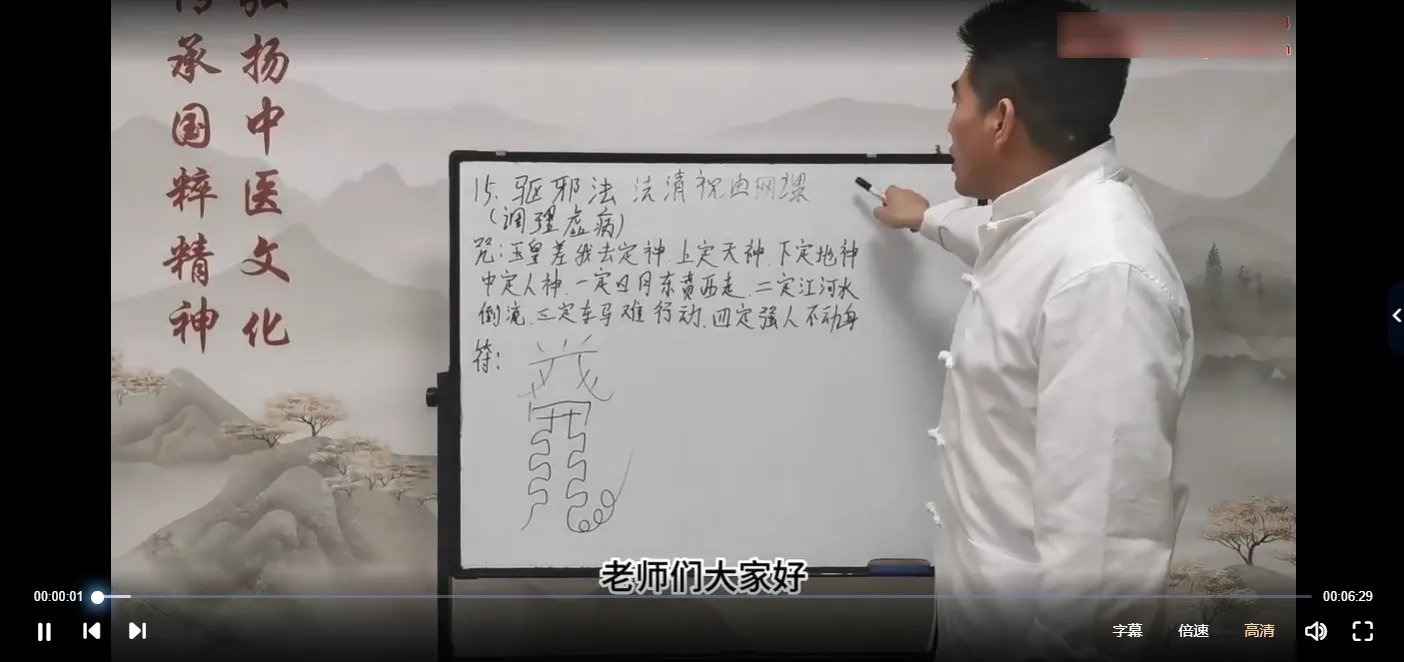 弘扬中医文化
传承国粹精神
15. 驱邪法 法清祝由网课
(调理虚病)
咒:玉皇差我去定神.上定天神.下定地神
中定人神.一定日月东奔西走.二定江河水
倒流.三定车马难行动.四定强人不动身
符:
老师们大家好
00:00:01
00:06:29
字幕
倍速
高清